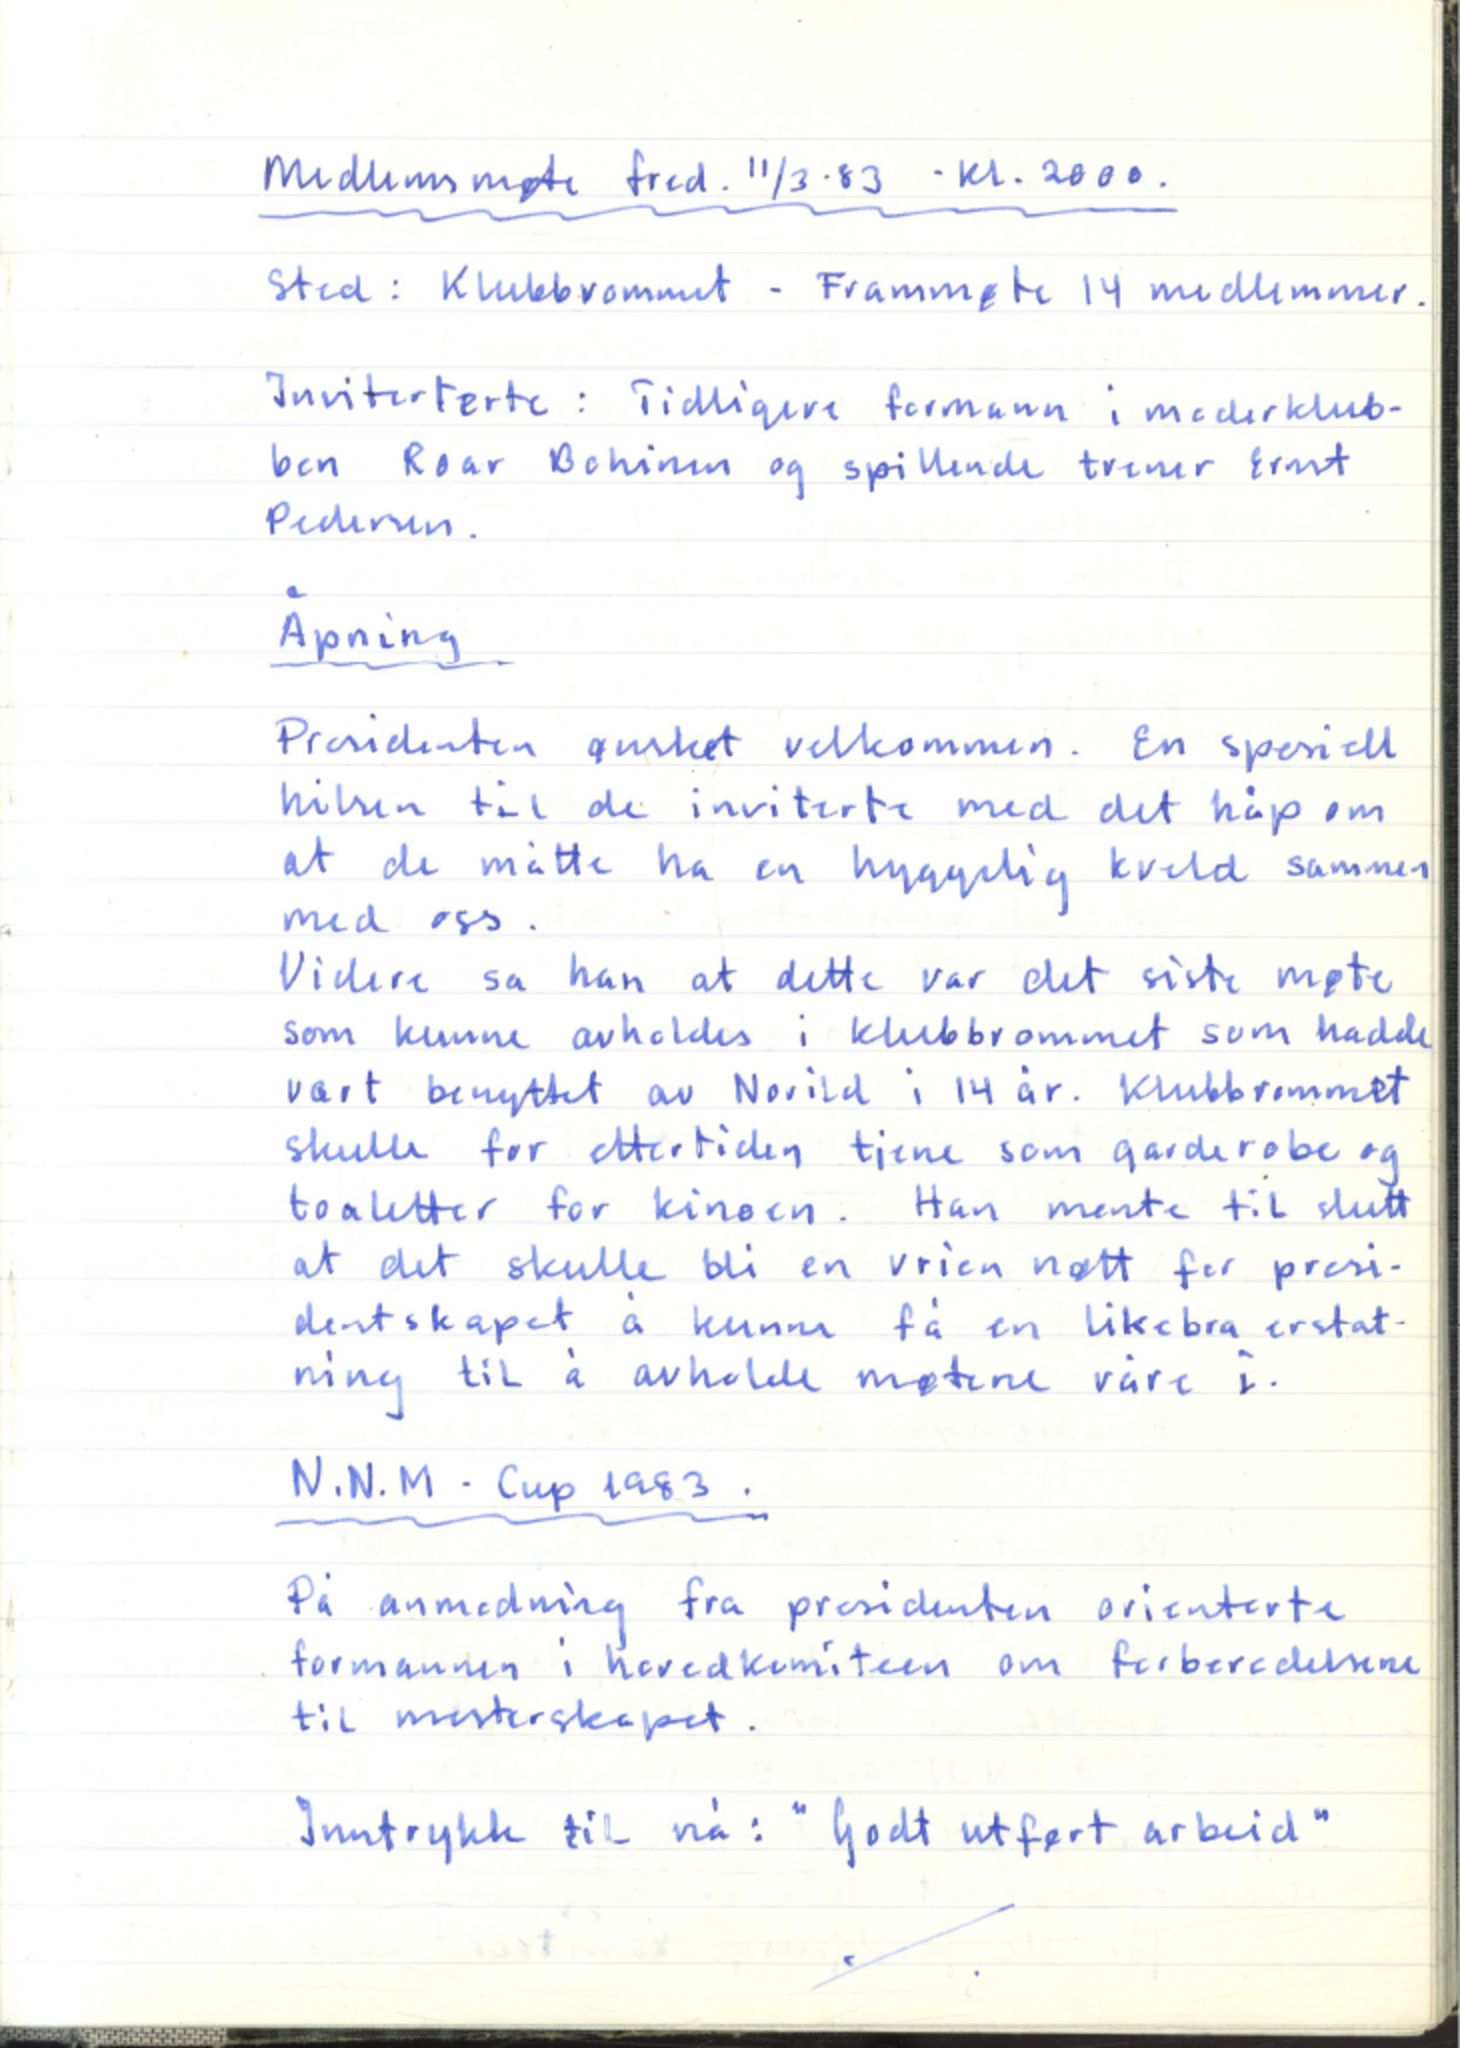 Medlemsmøte fred. 11/3.83 - kl. 2000.
Sted: Klubbrommet - Frammøte 14 medlemmer.
Inviterterte: Tidligere formann i moderklub-
ben Roar Bohinen og spillende trener Ernst
Pedersen.
Åpning
Presidenten ønsket velkommen. En spesiell
hilsen til de inviterte med det håp om
at de måtte ha en hyggelig kveld sammen
med oss.
Videre sa han at dette var det siste møte
som kunne avholdes i klubbrommet som hadde
vært benyttet av Norild i 14 år. Klubbrommet
skulle for ettertiden tjene som garderobe og
toaletter for kinoen. Han mente til slutt
at det skulle bli en vrien nøtt for presi-
dentskapet å kunne få en likebra erstat-
ning til å avholde møtene våre i.
N.N.M - Cup 1983.
På anmodning fra presidenten orienterte
formannen i hovedkomiteen om forberedelsene
til mesterskapet.
Inntrykk til nå: "Godt utført arbeid"
./.